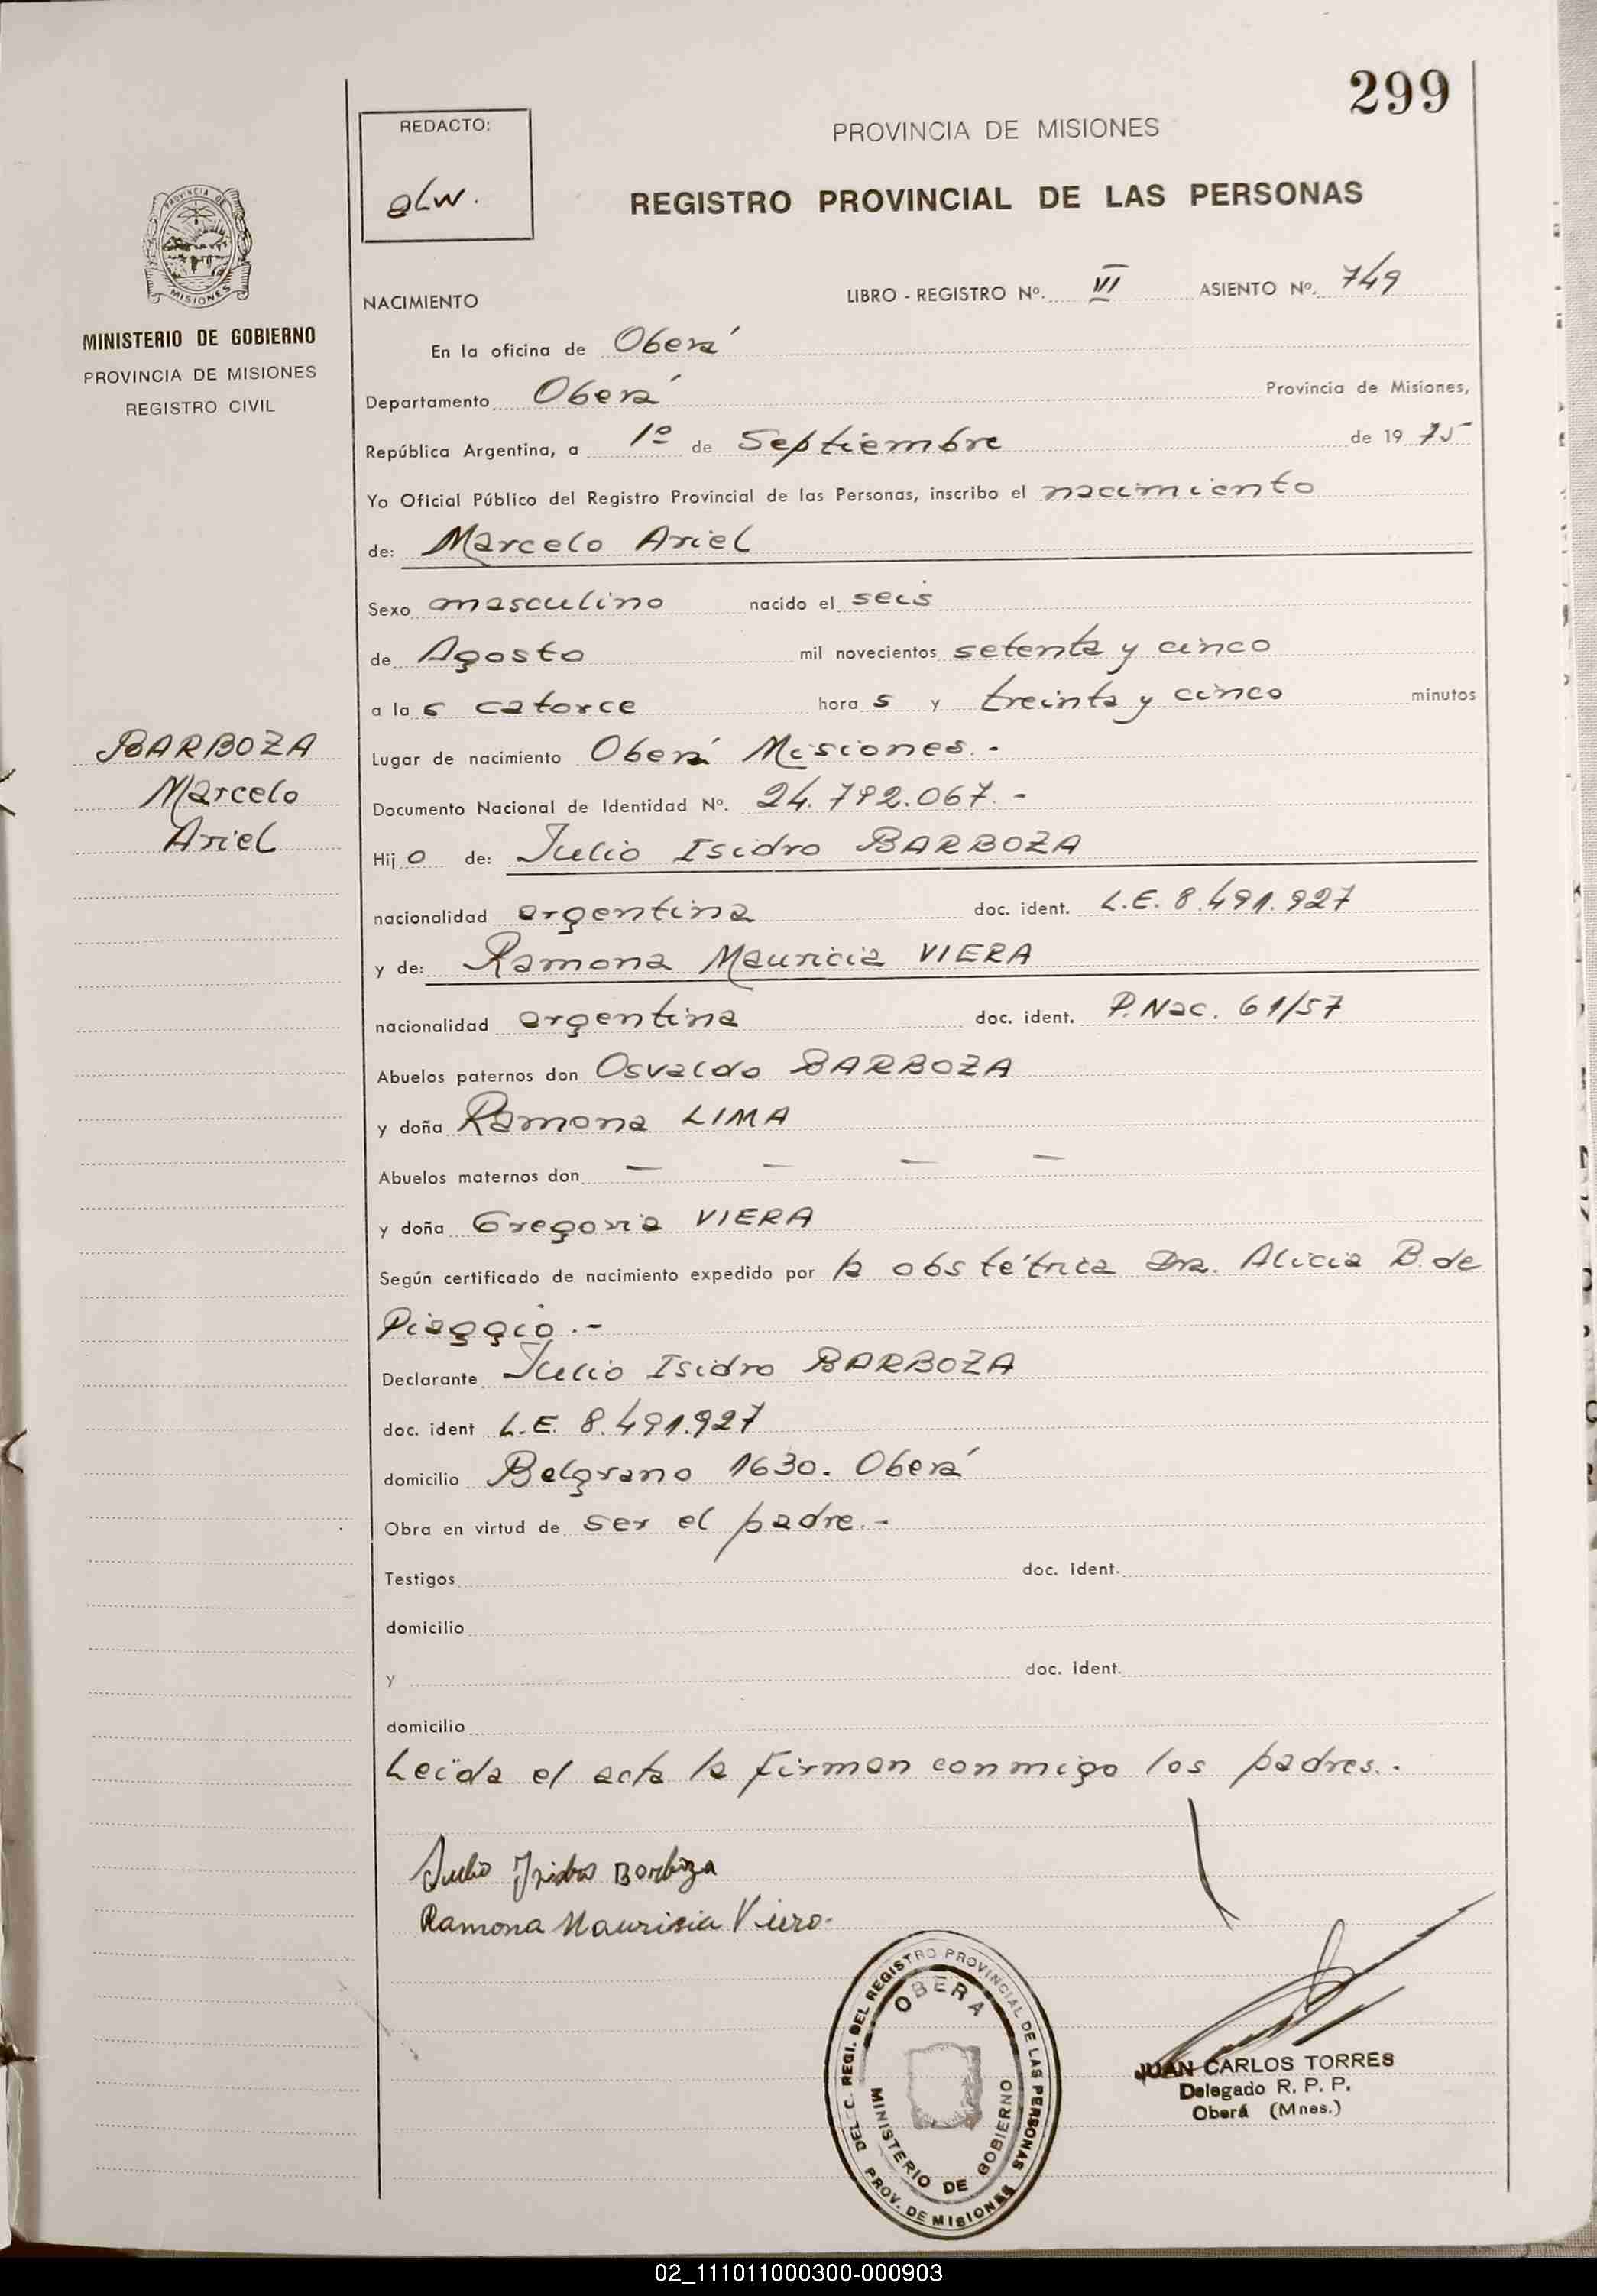 299
REDACTO:
PROVINCIA DE MISIONES
REGISTRO PROVINCIAL DE LAS PERSONAS
NACIMIENTO LIBRO - REGISTRO Nº. VI ASIENTO Nº. 749
MINISTERIO DE GOBIERNO
PROVINCIA DE MISIONES
REGISTRO CIVIL
En la oficina de Oberá
Departamento Oberá Provincia de Misiones,
República Argentina, a 1º de Septiembre de 19 75
Yo Oficial Público del Registro Provincial de las Personas, inscribo el nacimiento
de: Marcelo Ariel
Sexo masculino nacido el seis
de Agosto mil novecientos setenta y cinco
a la s catorce hora s y treinta y cinco minutos
BARBOZA
Marcelo
Ariel
Lugar de nacimiento Oberá Misiones.-
Documento Nacional de Identidad Nº. 24.792.067.-
Hij o de: Julio Isidro BARBOZA
nacionalidad argentina doc. ident. L.E. 8.491.927
y de: Ramona Mauricia VIERA
nacionalidad argentina doc. ident. P. Nac. 61/57
Abuelos paternos don Osvaldo BARBOZA
y doña Ramona LIMA
Abuelos maternos don — — — —
y doña Gregoria VIERA
Según certificado de nacimiento expedido por la obstétrica Dra. Alicia B. de
Piaggio.-
Declarante Julio Isidro BARBOZA
doc. ident L.E. 8.491.927
domicilio Belgrano 1630. Oberá
Obra en virtud de ser el padre.-
Testigos doc. ident.
domicilio
y doc. ident.
domicilio
Leída el acta la firman conmigo los padres.-
Julio Isidro Barboza
Ramona Maurisia Viera.
DELEC. REGI. DEL REGISTRO PROVINCIAL DE LAS PERSONAS
OBERA
MINISTERIO DE GOBIERNO
PROV. DE MISIONES
JUAN CARLOS TORRES
Delegado R. P. P.
Oberá (Mnes.)
02_111011000300-000903